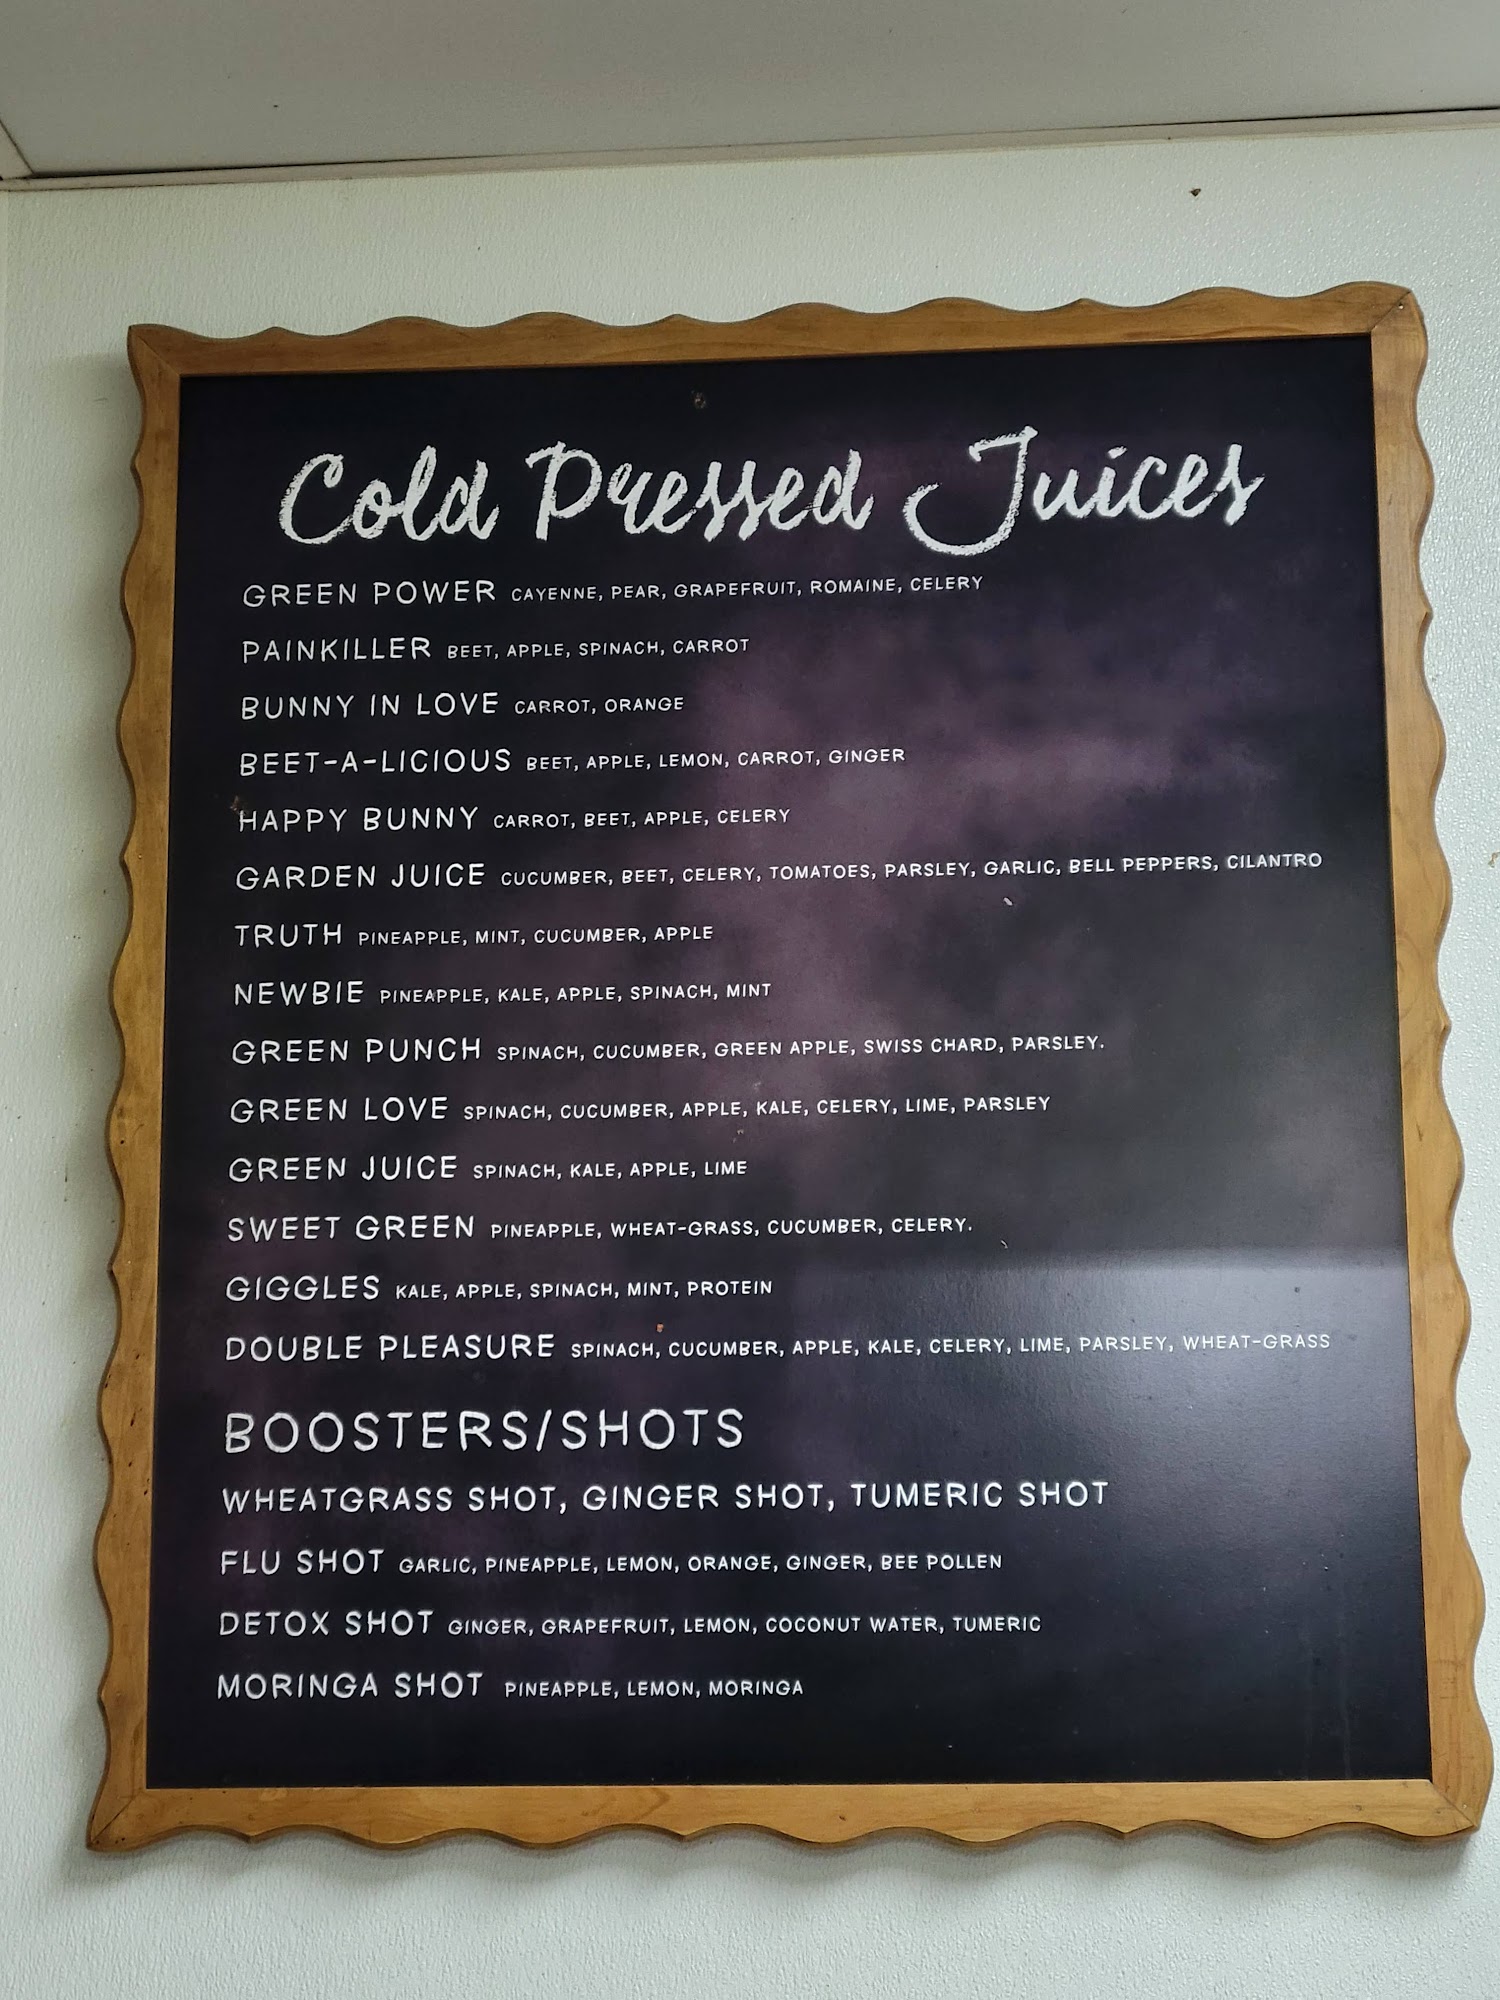 Cold Pressed Juices
GREEN POWER CAYENNE, PEAR, GRAPEFRUIT, ROMAINE, CELERY
PAINKILLER BEET, APPLE, SPINACH, CARROT
BUNNY IN LOVE CARROT, ORANGE
BEET-A-LICIOUS BEET, APPLE, LEMON, CARROT, GINGER
HAPPY BUNNY CARROT, BEET, APPLE, CELERY
GARDEN JUICE CUCUMBER, BEET, CELERY, TOMATOES, PARSLEY, GARLIC, BELL PEPPERS, CILANTRO
TRUTH PINEAPPLE, MINT, CUCUMBER, APPLE
NEWBIE PINEAPPLE, KALE, APPLE, SPINACH, MINT
GREEN PUNCH SPINACH, CUCUMBER, GREEN APPLE, SWISS CHARD, PARSLEY.
GREEN LOVE SPINACH, CUCUMBER, APPLE, KALE, CELERY, LIME, PARSLEY
GREEN JUICE SPINACH, KALE, APPLE, LIME
SWEET GREEN PINEAPPLE, WHEAT-GRASS, CUCUMBER, CELERY.
GIGGLES KALE, APPLE, SPINACH, MINT, PROTEIN
DOUBLE PLEASURE SPINACH, CUCUMBER, APPLE, KALE, CELERY, LIME, PARSLEY, WHEAT-GRASS
BOOSTERS/SHOTS
WHEATGRASS SHOT, GINGER SHOT, TUMERIC SHOT
FLU SHOT GARLIC, PINEAPPLE, LEMON, ORANGE, GINGER, BEE POLLEN
DETOX SHOT GINGER, GRAPEFRUIT, LEMON, COCONUT WATER, TUMERIC
MORINGA SHOT PINEAPPLE, LEMON, MORINGA